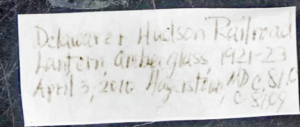 Delaware & Hudson Railroad
Lantern amber glass 1921-23
April 3, 2016 Hagerstown, MD